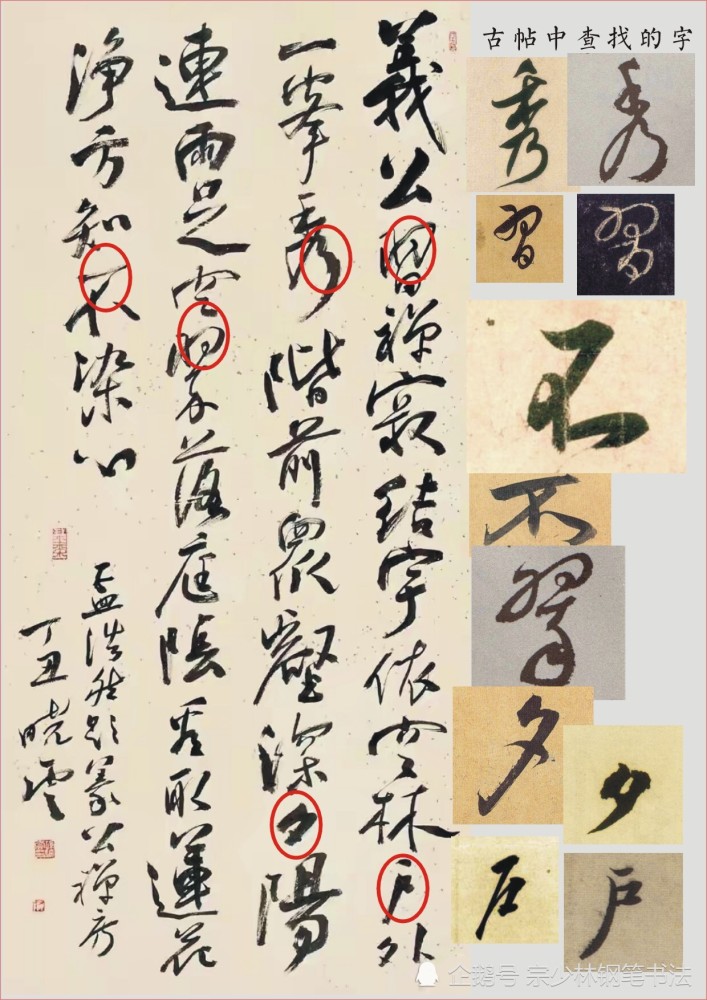 義公習禪寂結宇依空林戶外
一峯秀階前眾壑深夕陽
連雨足空翠落庭陰看取蓮花
淨方知不染心
孟浩然題義公禪房
丁丑曉雲
古帖中查找的字
秀 秀
習 習
不
不
翠
夕 夕
戶 戶
企鹅号 宗少林钢笔书法